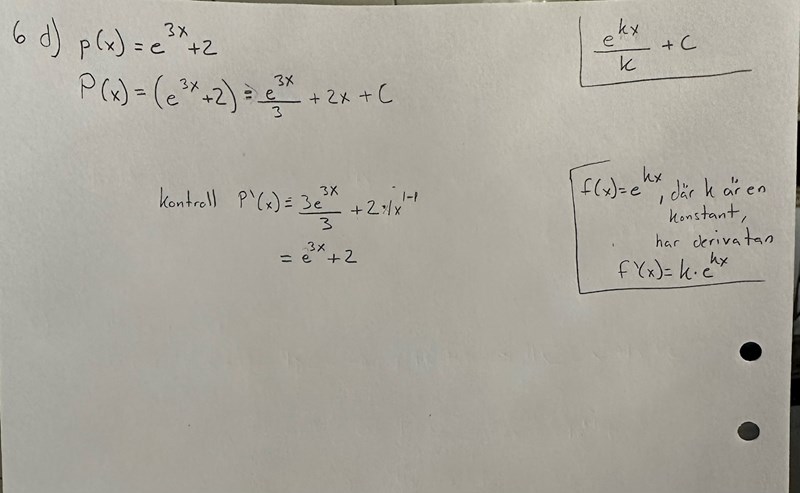 6 d) p(x) = e^3x + 2
P(x) = (e^3x + 2) = e^3x/3 + 2x + C
kontroll P'(x) = 3e^3x/3 + 2·1x^1-1
= e^3x + 2
e^kx/k + C
f(x) = e^kx, där k är en
konstant,
har derivatan
f'(x) = k·e^kx